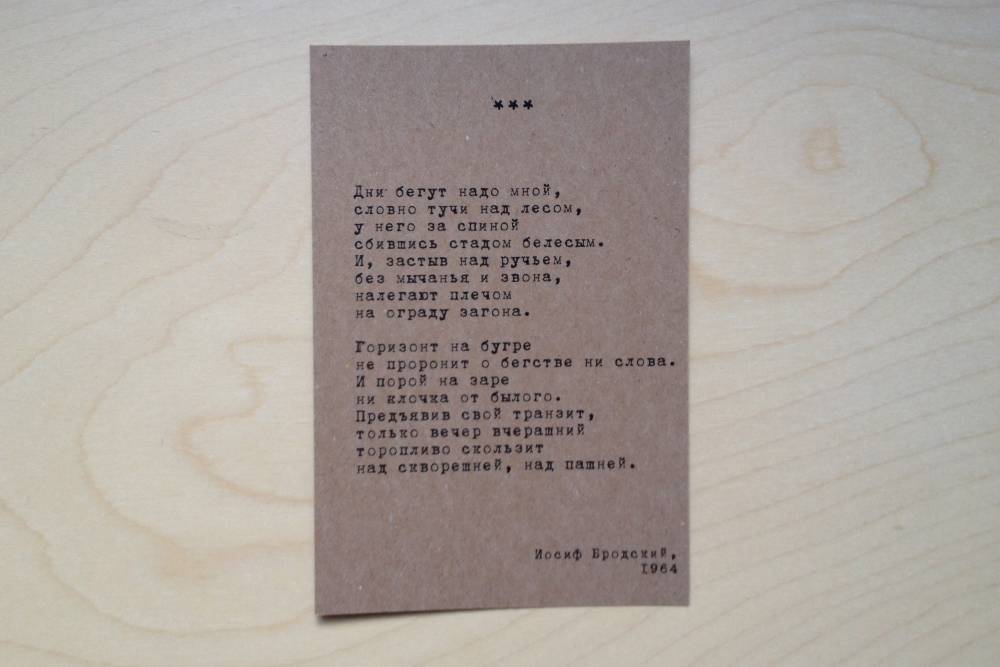 ***
Дни бегут надо мной,
словно тучи над лесом,
у него за спиной
сбившись стадом белесым.
И, застыв над ручьем,
без мычанья и звона,
налегают плечом
на ограду загона.
Горизонт на бугре
не проронит о бегстве ни слова.
И порой на заре
ни клочка от былого.
Предъявив свой транзит,
только вечер вчерашний
торопливо скользит
над скворешней, над пашней.
Иосиф Бродский,
1964